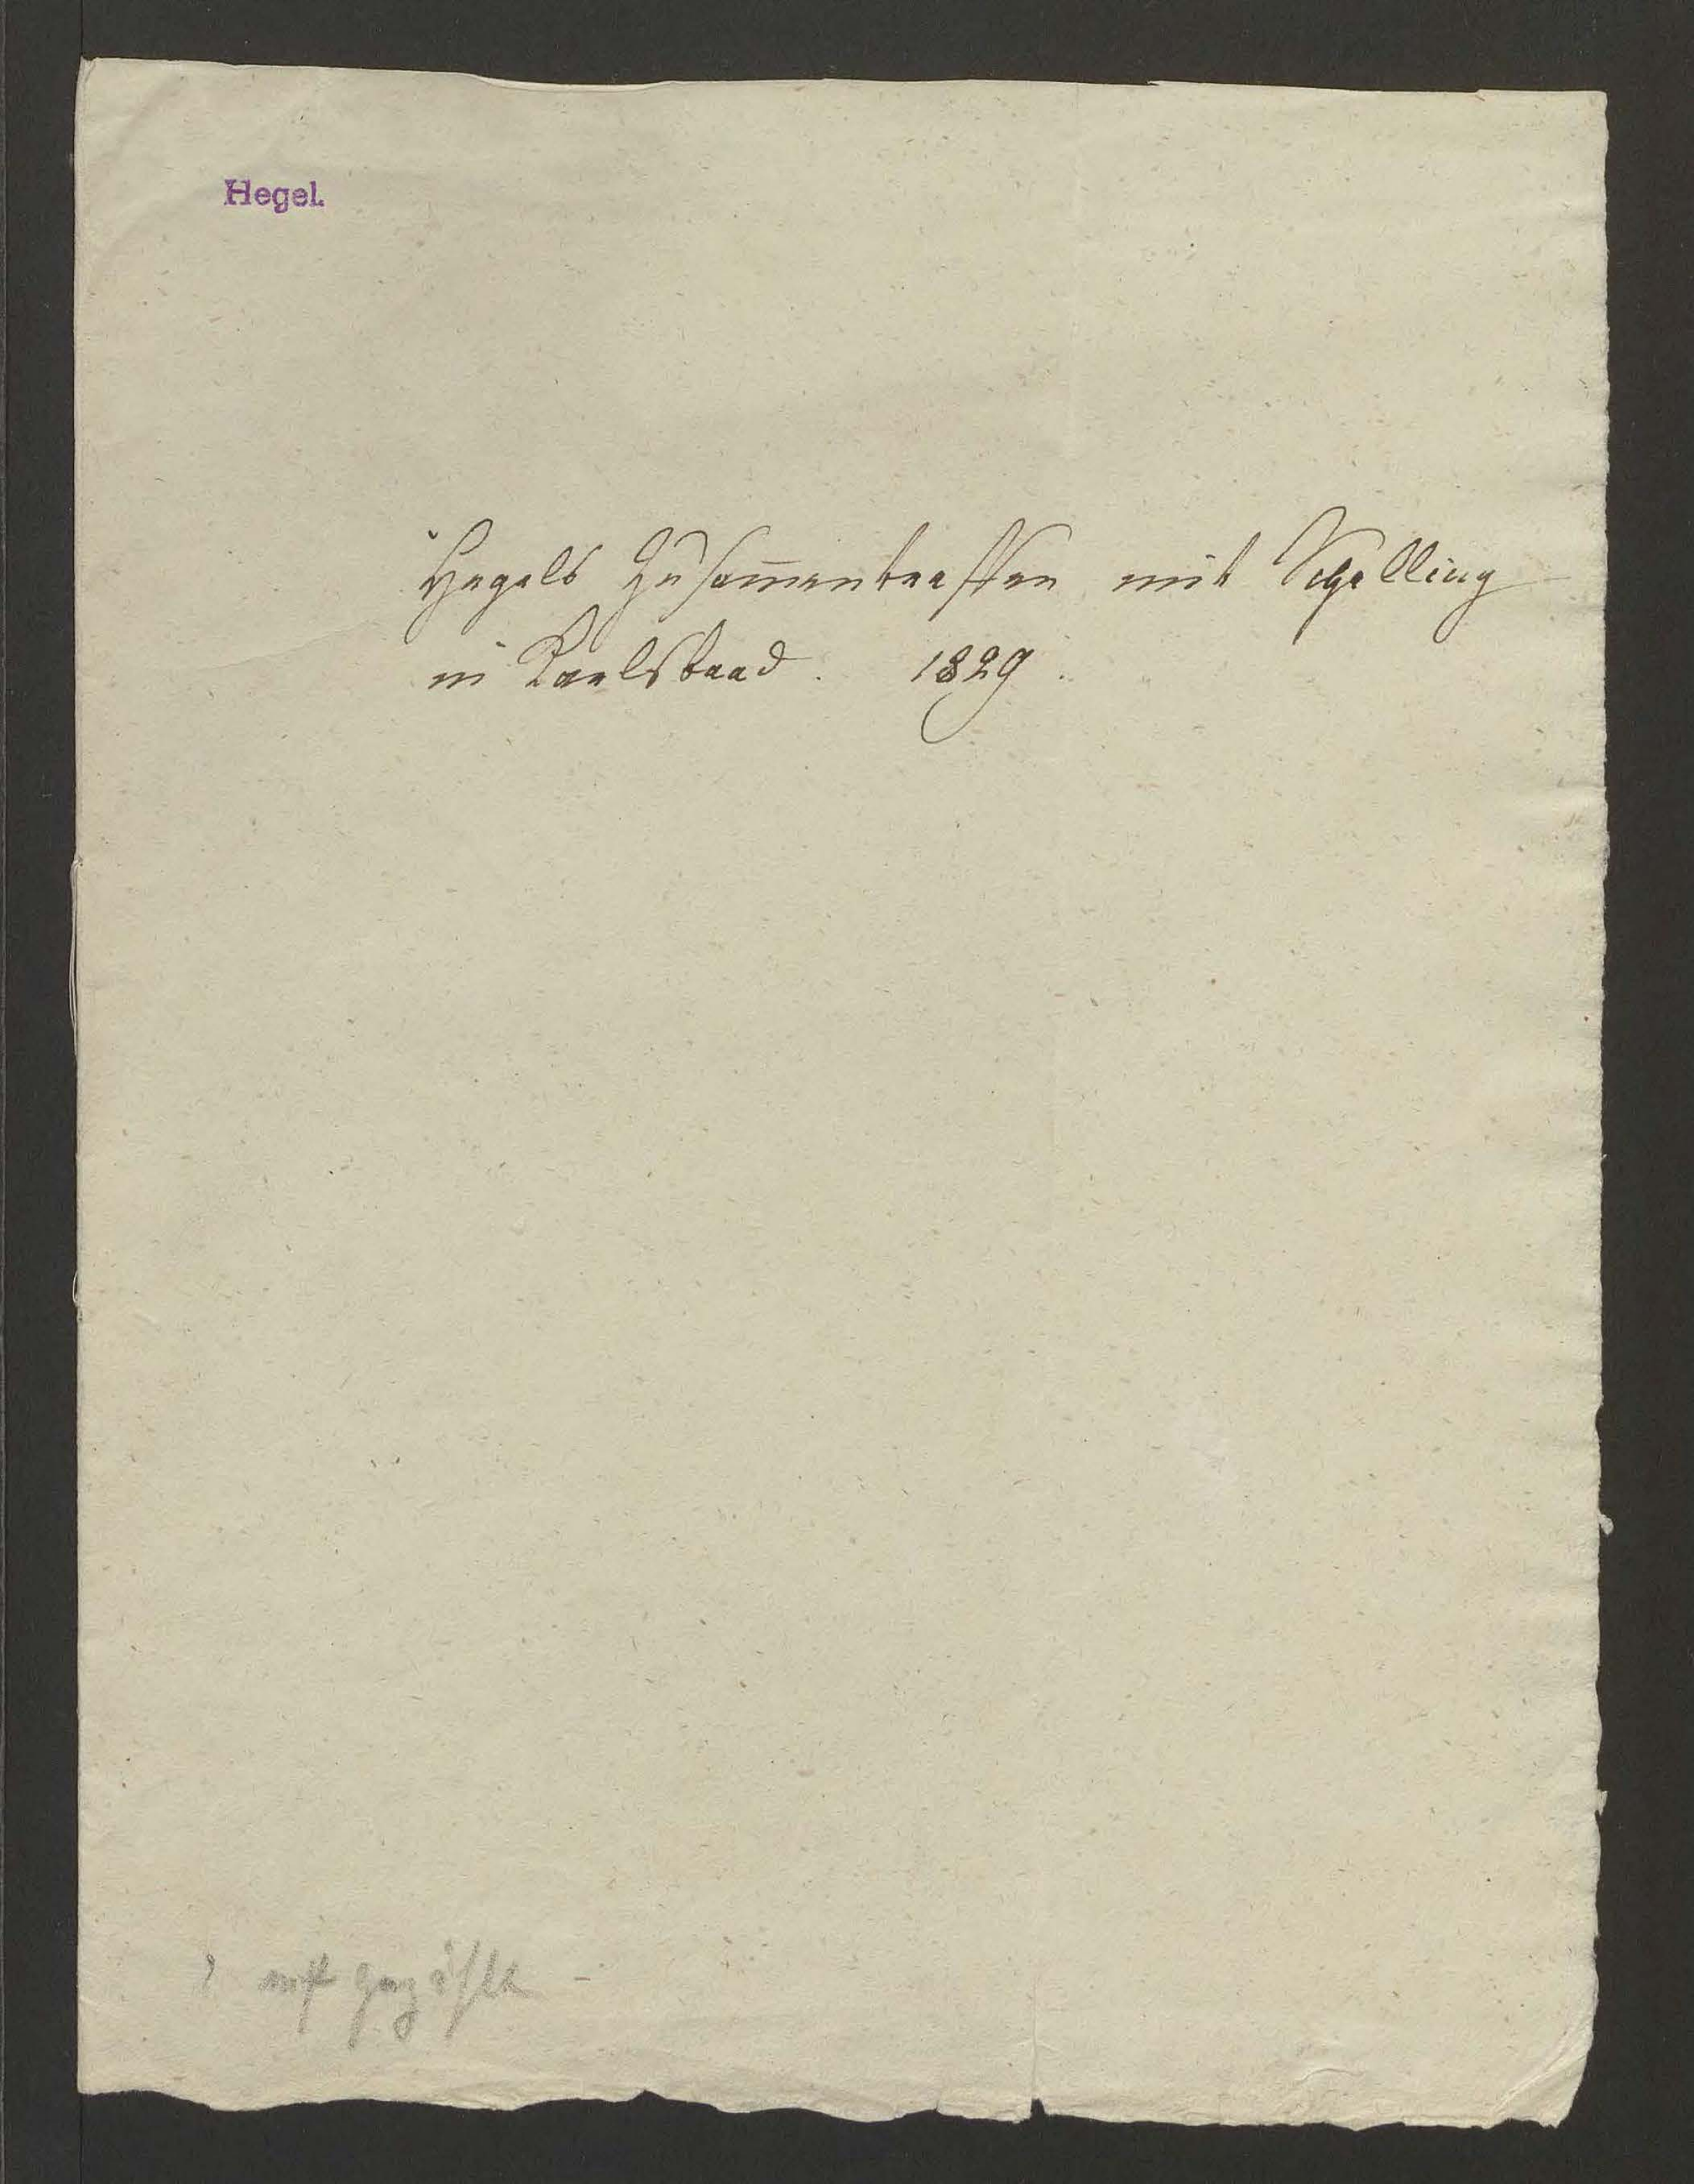 Hegel.
Hegels Zusam̅entreffen mit Schelling
in Karlsbaad. 1829.
nicht gezählt